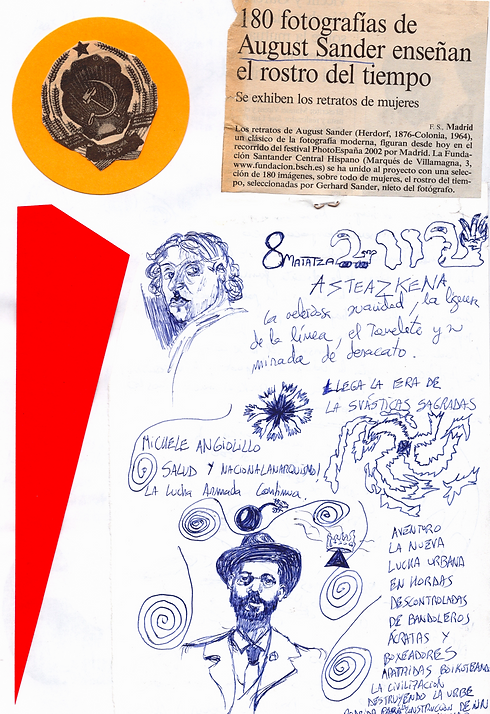 180 fotografías de
August Sander enseñan
el rostro del tiempo
Se exhiben los retratos de mujeres
F. S., Madrid
Los retratos de August Sander (Herdorf, 1876-Colonia, 1964),
un clásico de la fotografía moderna, figuran desde hoy en el
recorrido del festival PhotoEspaña 2002 por Madrid. La Funda-
ción Santander Central Hispano (Marqués de Villamagna, 3,
www.fundacion.bsch.es) se ha unido al proyecto con una selec-
ción de 180 imágenes, sobre todo de mujeres, el rostro del tiem-
po, seleccionadas por Gerhard Sander, nieto del fotógrafo.
8 MAIATZA
ASTEAZKENA
La
suavidad, la ligereza
de la línea, el
y su
mirada de desacato.
LLEGA LA ERA DE
LA SVÁSTICAS SAGRADAS
MICHELE ANGIOLILLO
SALUD Y NACIONALANARQUISMO!
LA LUCHA ARMADA CONTINUA.
AVENTURO
LA NUEVA
LUCHA URBANA
EN HORDAS
DESCONTROLADAS
DE BANDOLEROS
ÁCRATAS Y
BOXEADORES
APATRIDAS BOIKOTEANDO
LA CIVILIZACION
DESTRUYENDO LA URBE
CONSTRUCCION DE